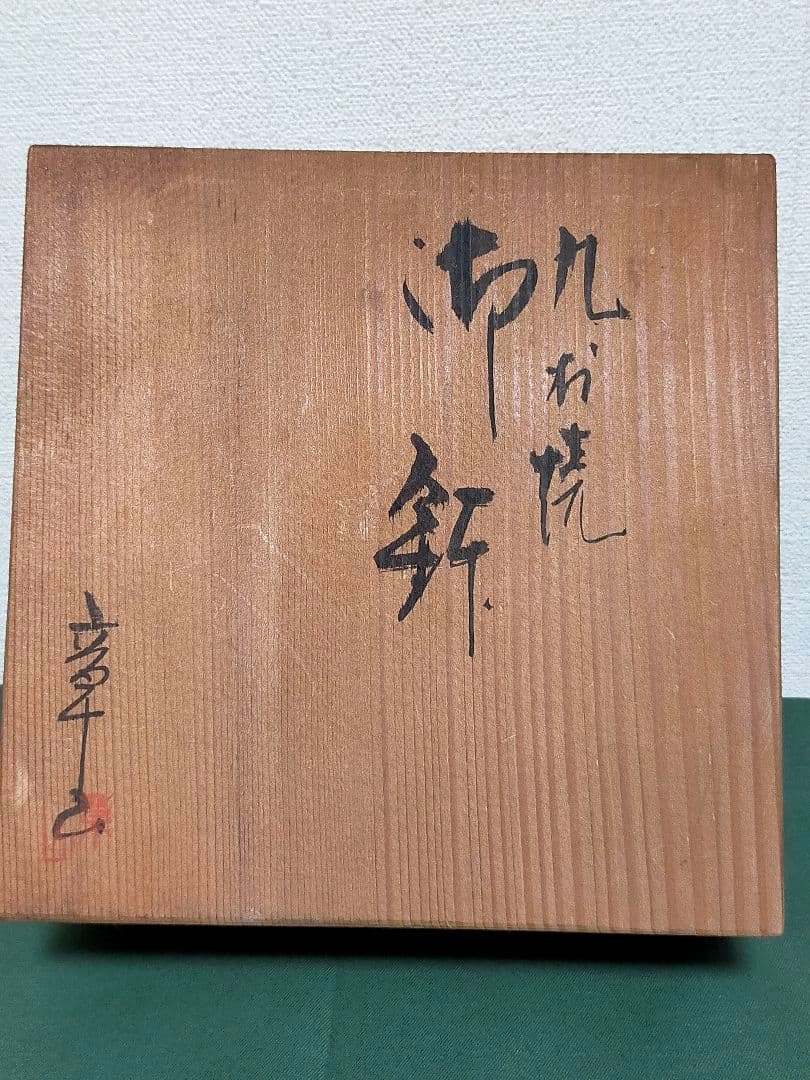 九谷焼
御鉢
章山